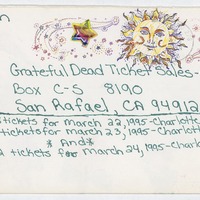 n
Grateful Dead Ticket Sales-
Box C-S 8190
San Rafael, CA 94912
tickets for March 22, 1995-Charlotte
tickets for march 23, 1995-Charlott
* And *
2 tickets for March 24, 1995-Charlo